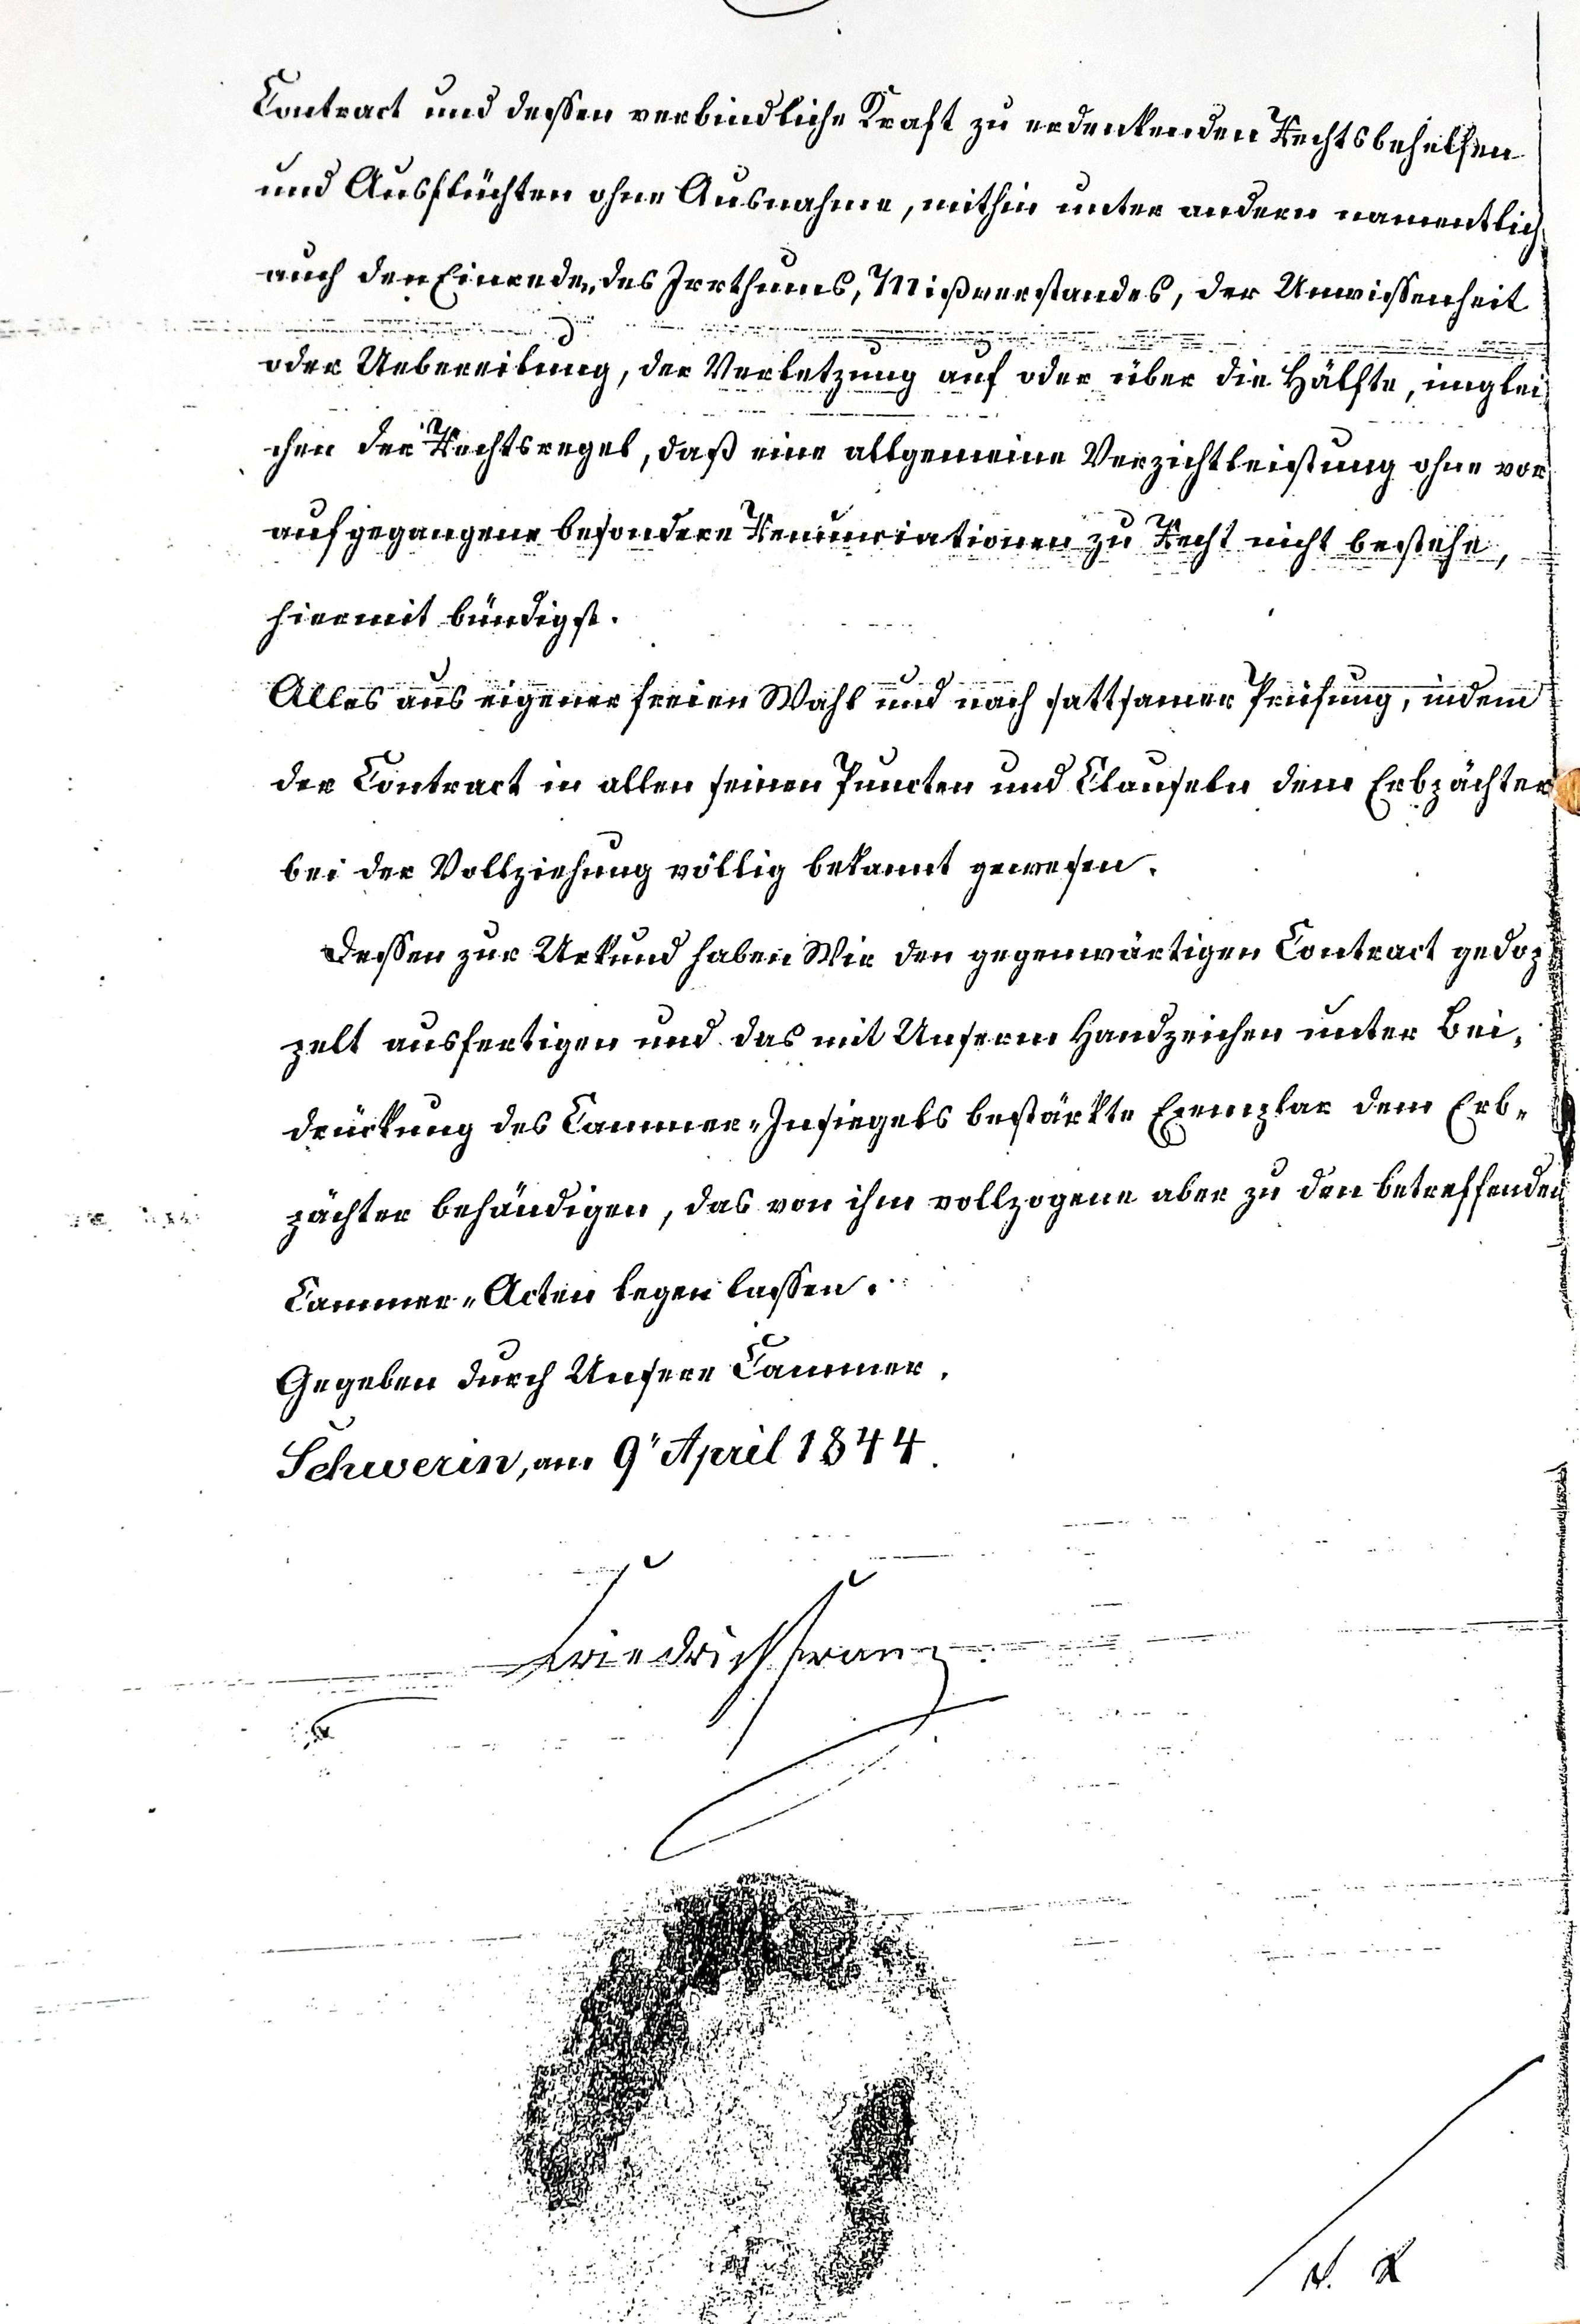 Contract und dessen verbindliche Kraft zu erdenkenden Rechtsbehelfen
und Ausflüchten ohne Ausnahme, mithin unter andern namentlich
auch den Einreden des Irrthums, Mißverstandes, der Unwissenheit
oder Uebereilung, der Verletzung auf oder über die Hälfte, imglei
chen der Rechtsregel, daß eine allgemeine Verzichtleistung ohne vor
aufgegangene besondere Renunciationen zu Recht nicht bestehe,
hiermit bündigst.
Alles aus eigener freien Wahl und nach sattsamer Prüfung, indem
der Contract in allen seinen Puncten und Clauseln dem Erbpächter
bei der Vollziehung völlig bekannt gewesen.
Dessen zur Urkund haben Wir den gegenwärtigen Contract gedop
pelt ausfertigen und das mit Unserm Handzeichen unter Bei-
drückung des Cammer-Insiegels bestärkte Exemplar dem Erb-
pächter behändigen, das von ihm vollzogene aber zu den betreffenden
Cammer-Acten legen lassen.
Gegeben durch Unsere Cammer.
Schwerin, am 9" April 1844.
Friedrich Franz